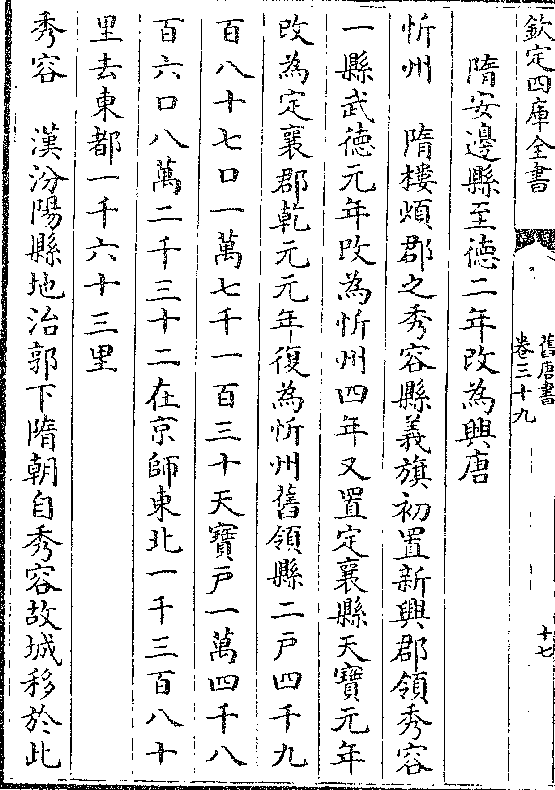 欽定四庫全書
舊唐書
卷三十九
十七
隋安邊縣至德二年改為興唐
忻州　隋樓煩郡之秀容縣義旗初置新興郡領秀容
一縣武德元年改為忻州四年又置定襄縣天寶元年
改為定襄郡乾元元年復為忻州舊領縣二戶四千九
百八十七口一萬七千一百三十天寶戶一萬四千八
百六口八萬二千三十二在京師東北一千三百八十
里去東都一千六十三里
秀容　漢汾陽縣地治郭下隋朝自秀容故城移於此